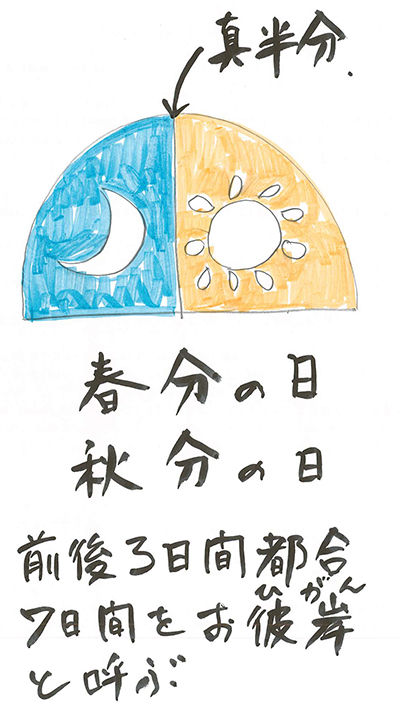 真半分.
春分の日
秋分の日
前後3日間都合
7日間をお彼岸
ひがん
と呼ぶ